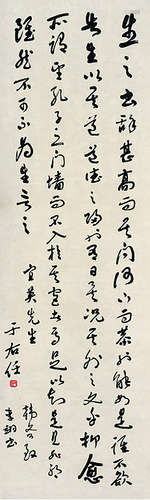 生之書辭甚高而其問何下而恭也能如是誰不欲
告生以其道道德之歸也有日矣況其外之文乎抑愈
所謂望孔子之門牆而不入於其宮者焉足以知是且非邪
雖然不可不為生言之
宜英先生
于右任
韓文公致
李翊書